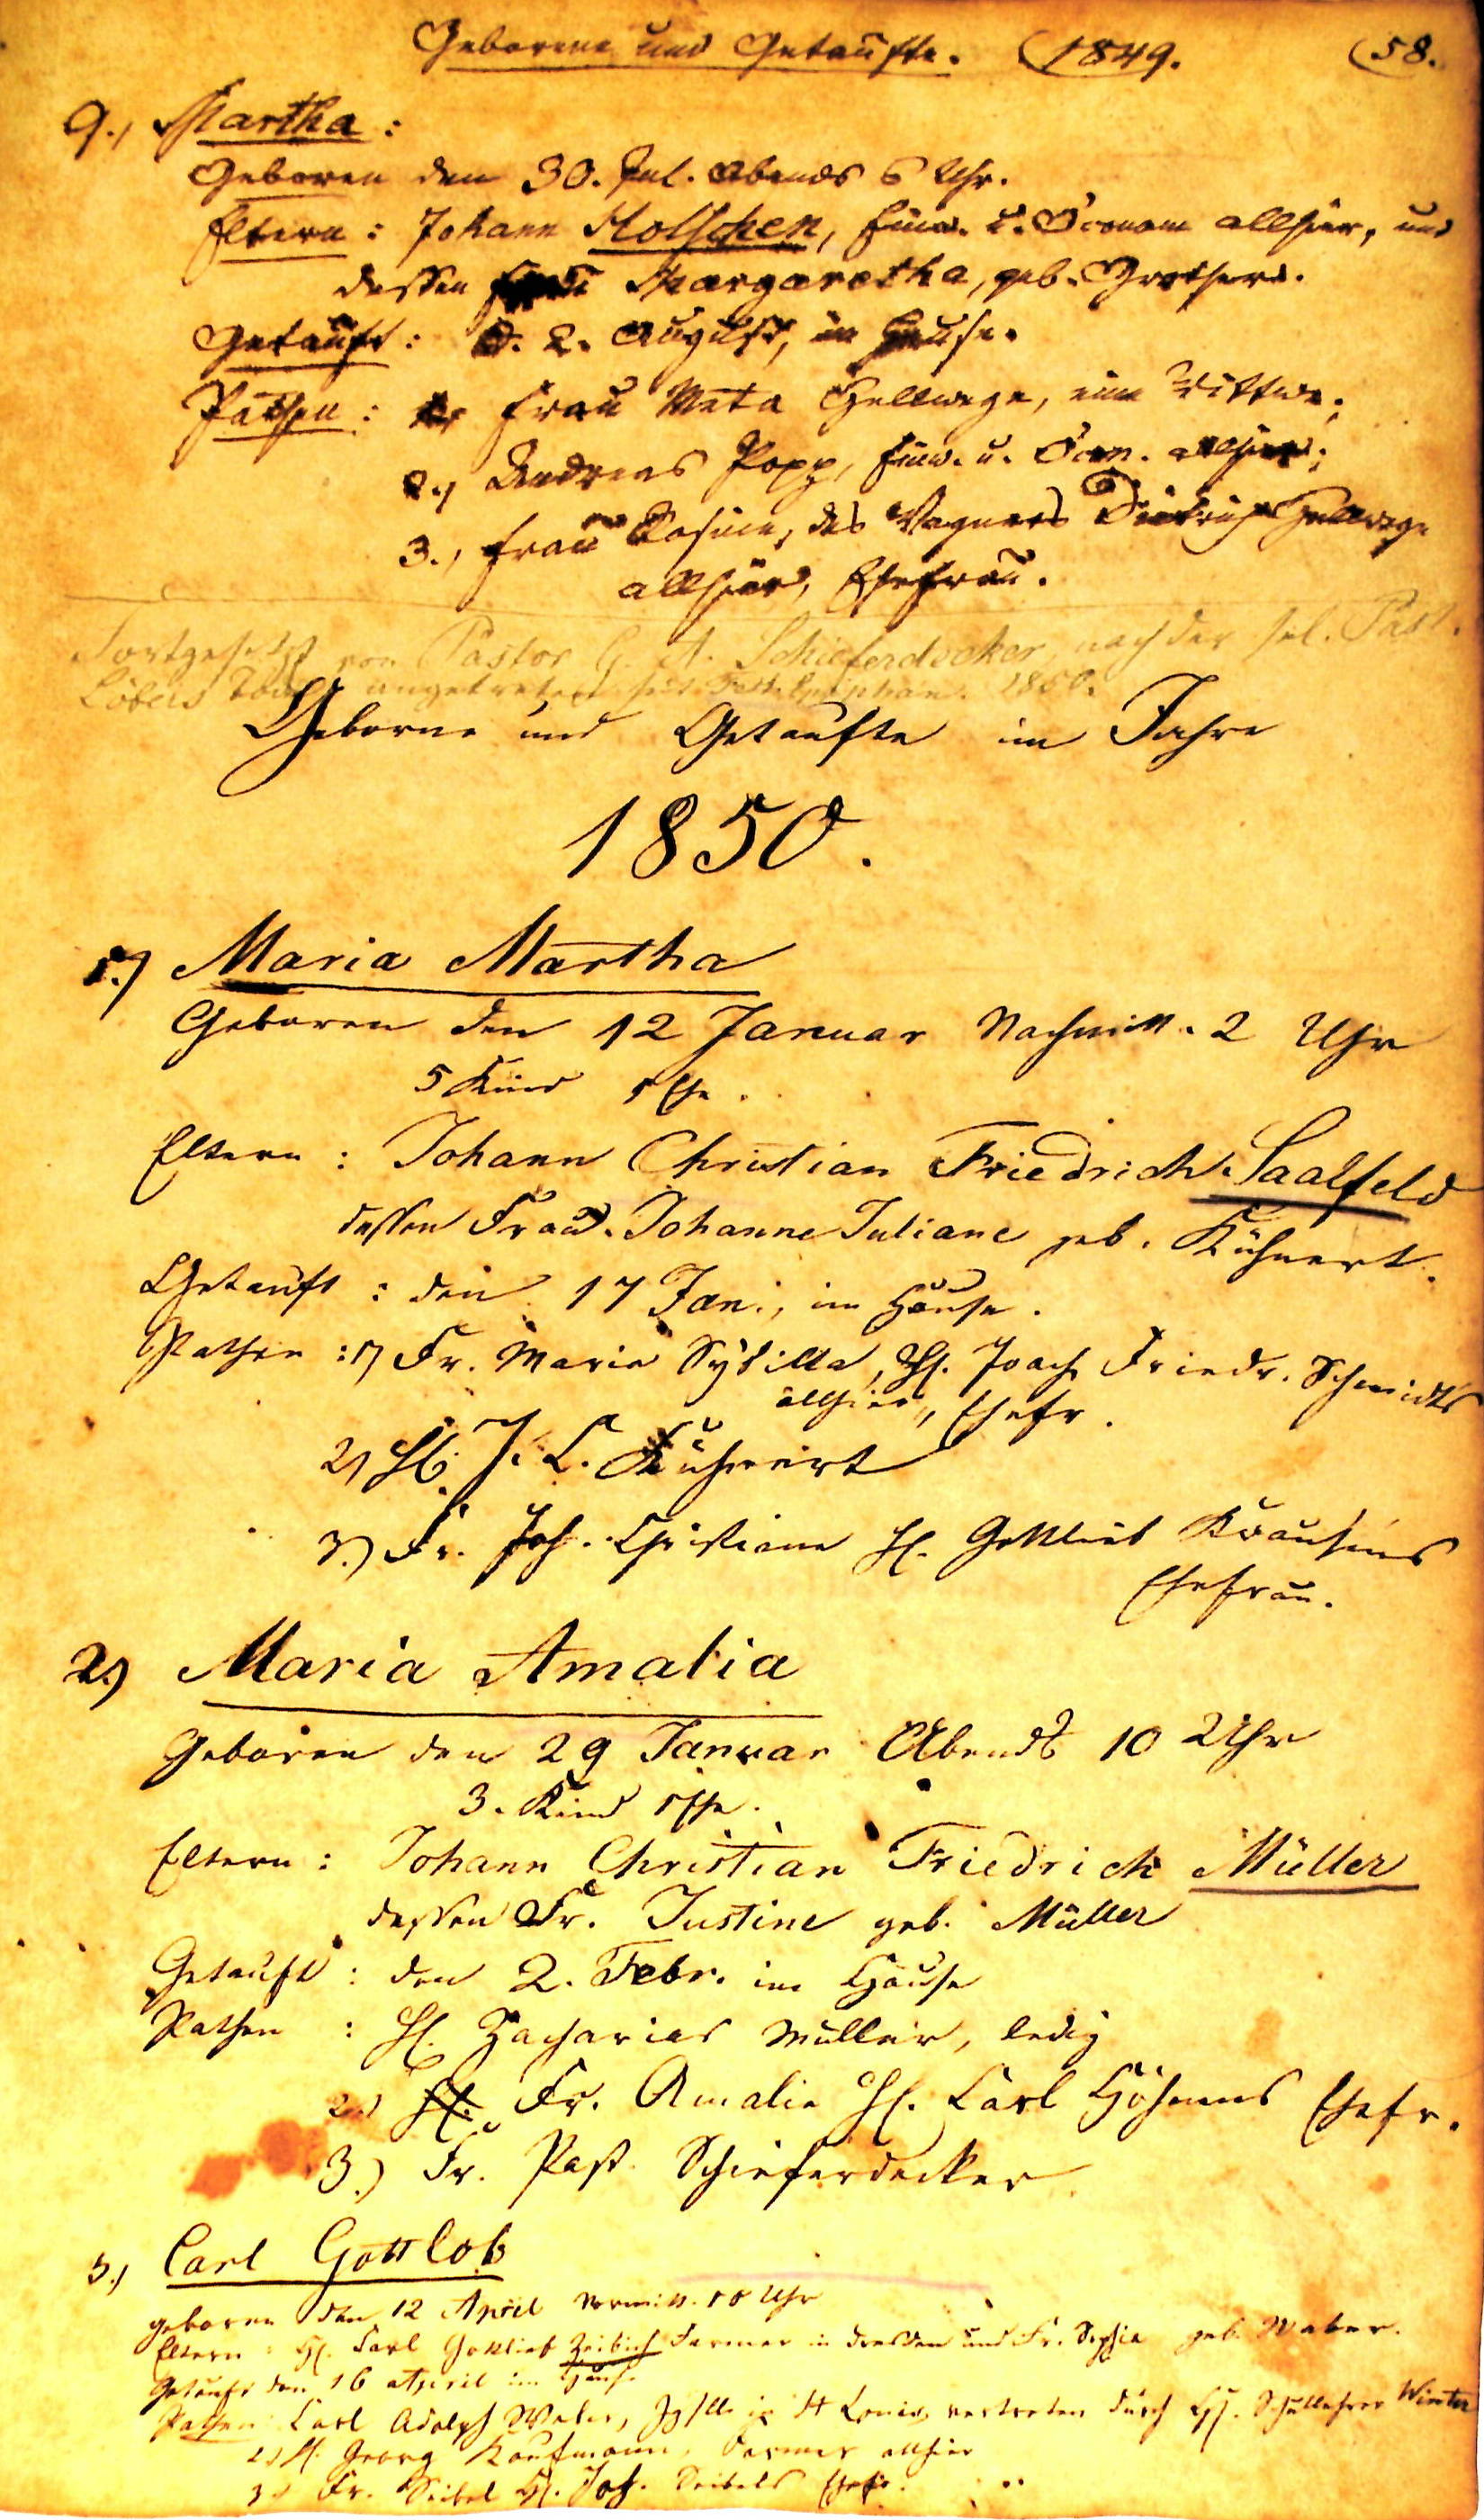 Geborene und Getaufte. (1849. (58.
9., Martha:
Geboren den 30. Jul. Abends 6 Uhr.
Eltern: Johann Holschen, Einw. u. Öconom allhier, und
dessen Frau Margaretha, geb.
Getauft: d. 2. August, im Hause.
Pathen: Frau Meta Hellwege, eine Wittwe;
2., Andreas Popp, Einw. u. Öcon. allhier;
3., Frau Rosine, des Wagners Dietrich Hellwege
allhier, Ehefrau.
Fortgesetzt von Pastor G. A. Schieferdecker, nach des sel. Past.
Löbers Tode angetreten seit Fest. Epiphan. 1850.
Geborne und Getaufte im Jahre
1850.
1.) Maria Martha
Geboren den 12 Januar Nachmitt. 2 Uhr
5 Kind 1 Ehe.
Eltern: Johann Christian Friedrich Saalfeld
dessen Frau. Johanne Juliane geb. Kühnert.
Getauft: den 17 Jan., im Hause.
Pathen: 1) Fr. Marie Sybilla, H. Joach Friedr. Schmidts
allhier, Ehefr.
2) H. J. C. Kühnert
3.) Fr. Joh. Christiane H. Gottlieb Krausens
Ehefrau.
2.) Maria Amalia
Geboren den 29 Januar Abends 10 Uhr
3. Kind 1 Ehe.
Eltern: Johann Christian Friedrich Müller
dessen Fr. Justine geb. Müller
Getauft: den 2. Febr. im Hause
Pathen: H. Zacharias Müller, ledig
2.) Fr. Amalie H. Carl Höhnens Ehefr.
3.) Fr. Past. Schieferdecker
3.) Carl Gottlob
geboren den 12 April Vormitt. 10 Uhr
Eltern: H. Carl Gottlieb Zeibich Farmer in Dresden und Fr. Sophie geb. Weber.
Getauft den 16 April im Hause
Pathen Carl Adolph Weber, in St Louis, vertreten durch H. Schullehrer Winter
2) H. Georg Kaufmann, Farmer allhier
3) Fr. Seibel H. Joh. Seibels Ehefr.